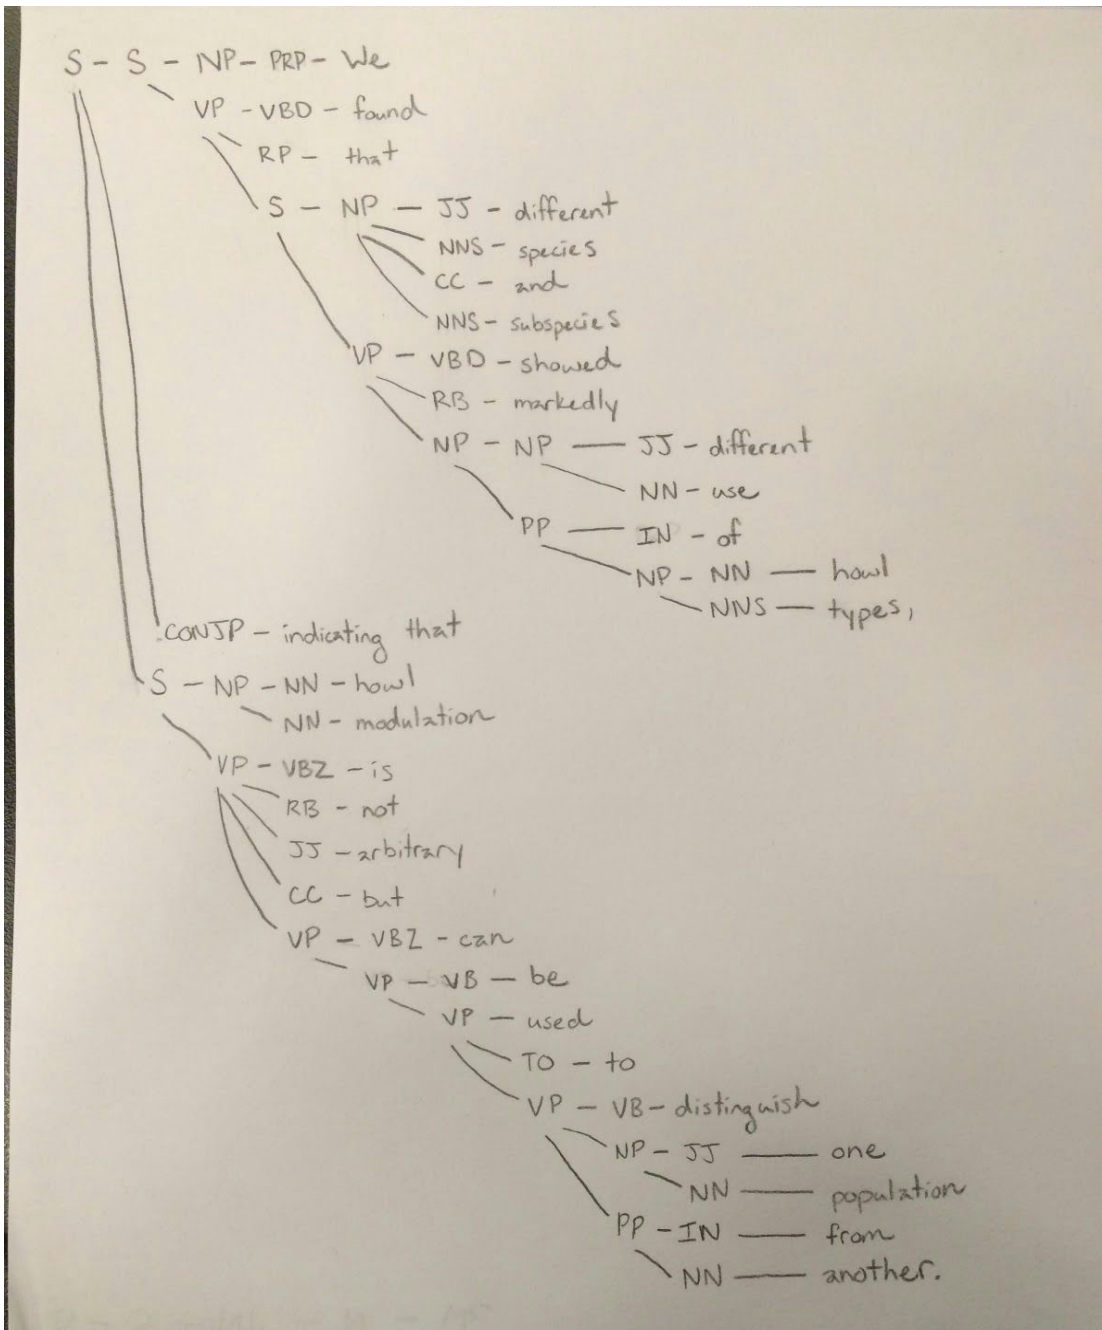 S - S - NP - PRP - We
VP - VBD - found
RP - that
S - NP - JJ - different
NNS - species
CC - and
NNS - subspecies
VP - VBD - showed
RB - markedly
NP - NP - JJ - different
NN - use
PP - IN - of
NP - NN - howl
NNS - types,
CONJP - indicating that
S - NP - NN - howl
NN - modulation
VP - VBZ - is
RB - not
JJ - arbitrary
CC - but
VP - VBZ - can
VP - VB - be
VP - used
TO - to
VP - VB - distinguish
NP - JJ - one
NN - population
PP - IN - from
NN - another.